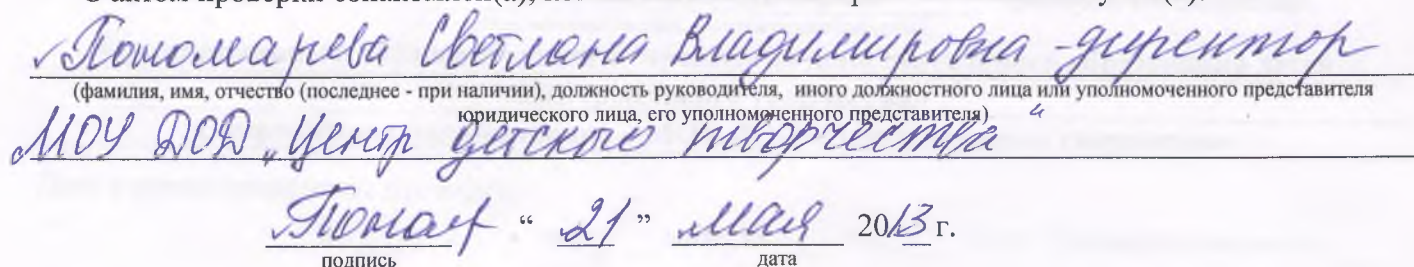 Пономарева Светлана Владимировна - директор
(фамилия, имя, отчество (последнее - при наличии), должность руководителя, иного должностного лица или уполномоченного представителя
юридического лица, его уполномоченного представителя)
МОУ ДОД „Центр детского творчества“
Поном “ 21 ” мая 2013 г.
подпись дата